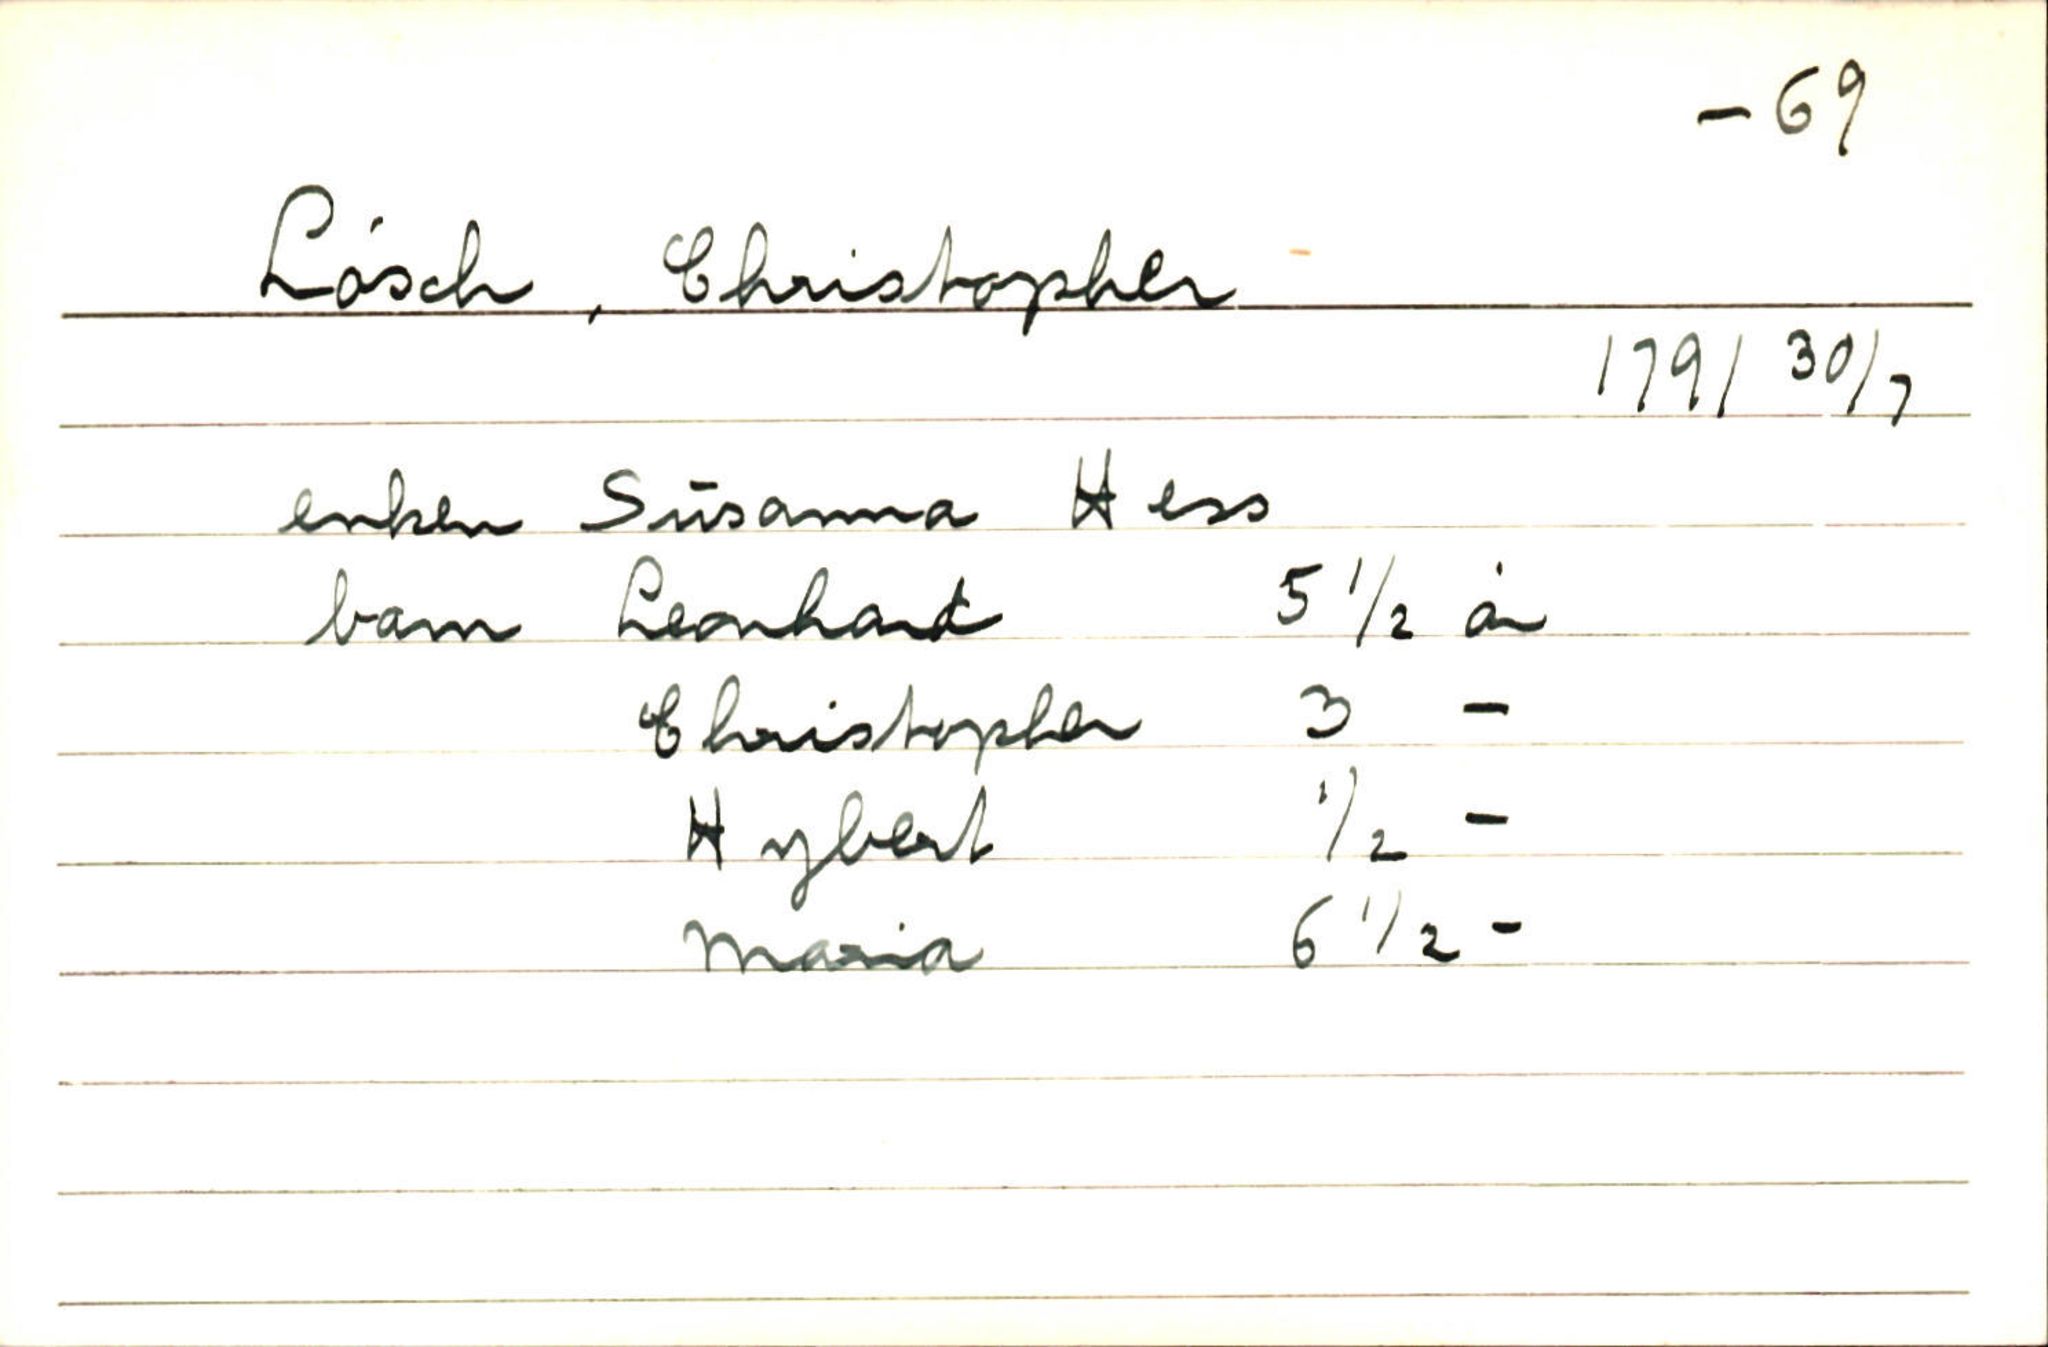 - 69
Lösch, Christopher
1791 30/7
enken Susanna Hess
barn Leonhard 5 1/2 år
Christopher 3 -
Hybert 1/2 -
Maria 6 1/2 -